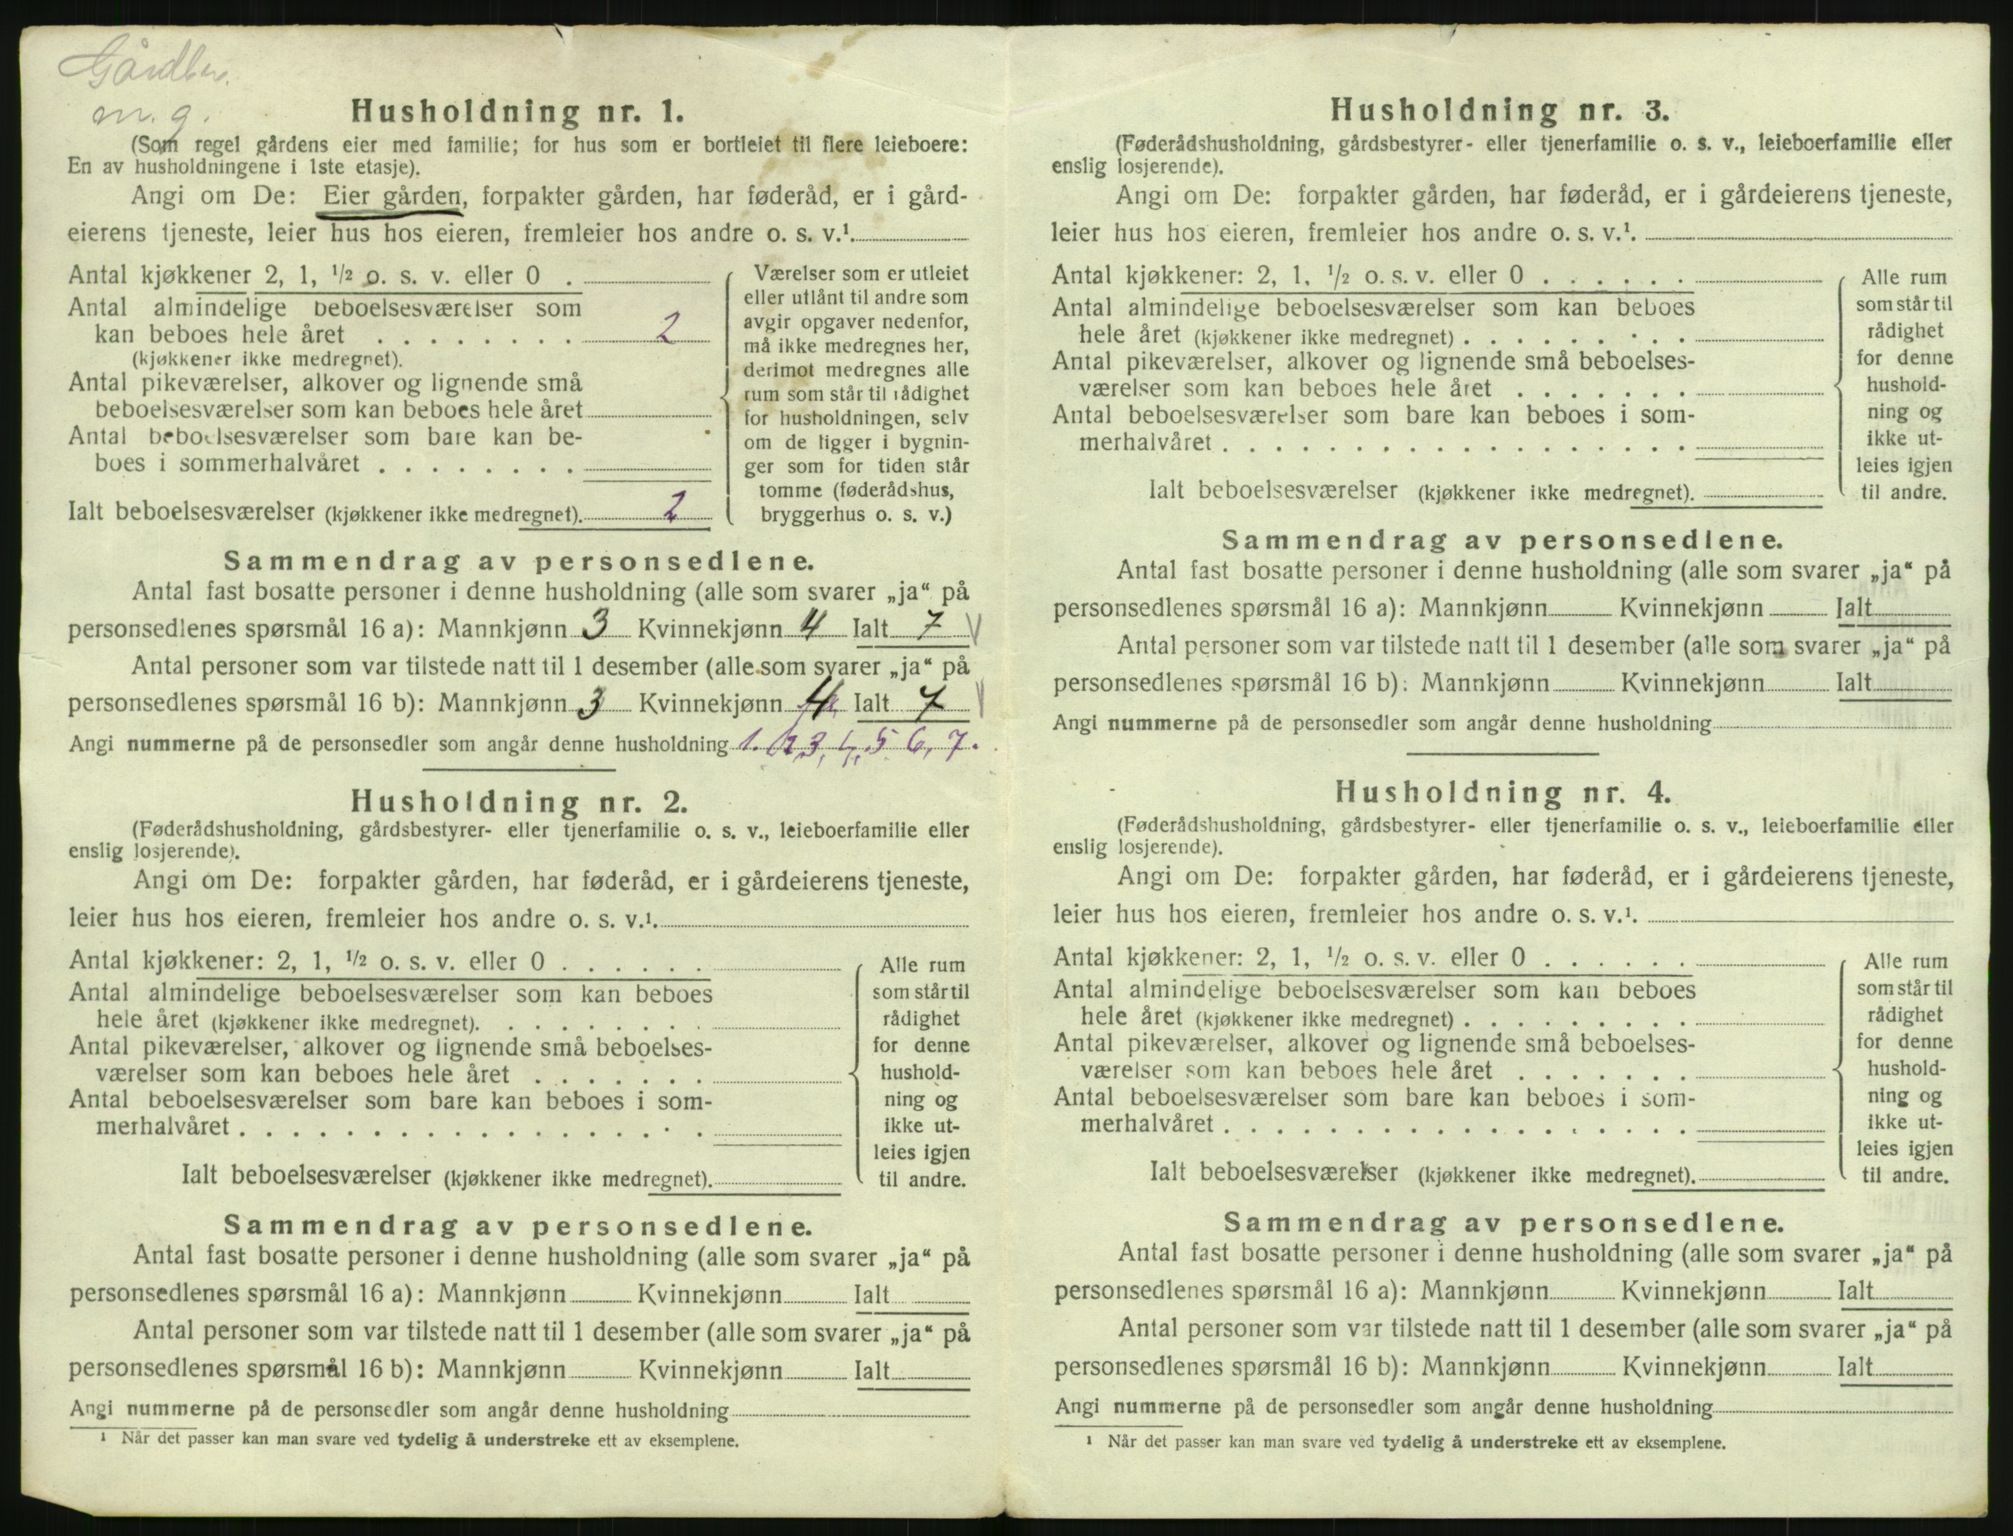 Gårdbr.
m. g.
Husholdning nr. 1.
(Som regel gårdens eier med familie; for hus som er bortleiet til flere leieboere:
En av husholdningene i 1ste etasje).
Angi om De: Eier gården, forpakter gården, har føderåd, er i gård-
eierens tjeneste, leier hus hos eieren, fremleier hos andre o. s. v.¹
Antal kjøkkener 2, 1, ½ o. s. v. eller 0 .
Antal almindelige beboelsesværelser som
kan beboes hele året . . . . . . . . 2
(kjøkkener ikke medregnet).
Antal pikeværelser, alkover og lignende små
beboelsesværelser som kan beboes hele året
Antal beboelsesværelser som bare kan be-
boes i sommerhalvåret . . . . . . . .
Ialt beboelsesværelser (kjøkkener ikke medregnet). 2
Værelser som er utleiet
eller utlånt til andre som
avgir opgaver nedenfor,
må ikke medregnes her,
derimot medregnes alle
rum som står til rådighet
for husholdningen, selv
om de ligger i bygnin-
ger som for tiden står
tomme (føderådshus,
bryggerhus o. s. v.)
Sammendrag av personsedlene.
Antal fast bosatte personer i denne husholdning (alle som svarer „ja“ på
personsedlenes spørsmål 16 a): Mannkjønn 3 Kvinnekjønn 4 Ialt 7
Antal personer som var tilstede natt til 1 desember (alle som svarer „ja“ på
personsedlenes spørsmål 16 b): Mannkjønn 3 Kvinnekjønn 4 Ialt 7
Angi nummerne på de personsedler som angår denne husholdning 1. 2, 3, 4, 5 6, 7.
Husholdning nr. 2.
(Føderådshusholdning, gårdsbestyrer- eller tjenerfamilie o. s. v., leieboerfamilie eller
enslig losjerende).
Angi om De: forpakter gården, har føderåd, er i gårdeierens tjeneste,
leier hus hos eieren, fremleier hos andre o. s. v.¹
Antal kjøkkener: 2, 1, ½ o. s. v. eller 0 . . . . . .
Antal almindelige beboelsesværelser som kan beboes
hele året (kjøkkener ikke medregnet). . . . . . . . .
Antal pikeværelser, alkover og lignende små beboelses-
værelser som kan beboes hele året . . . . . . .
Antal beboelsesværelser som bare kan beboes i som-
merhalvåret . . . . . . . . . . . . . . . . . .
Ialt beboelsesværelser (kjøkkener ikke medregnet).
Alle rum
som står til
rådighet
for denne
hushold-
ning og
ikke ut-
leies igjen
til andre.
Sammendrag av personsedlene.
Antal fast bosatte personer i denne husholdning (alle som svarer „ja“ på
personsedlenes spørsmål 16 a): Mannkjønn Kvinnekjønn Ialt
Antal personer som var tilstede natt til 1 desember (alle som svarer „ja“ på
personsedlenes spørsmål 16 b): Mannkjønn Kvinnekjønn Ialt
Angi nummerne på de personsedler som angår denne husholdning
¹ Når det passer kan man svare ved tydelig å understreke ett av eksemplene.
Husholdning nr. 3.
(Føderådshusholdning, gårdsbestyrer- eller tjenerfamilie o. s. v., leieboerfamilie eller
enslig losjerende).
Angi om De: forpakter gården, har føderåd, er i gårdeierens tjeneste,
leier hus hos eieren, fremleier hos andre o. s. v.¹.
Antal kjøkkener: 2, 1, ½ o. s. v. eller 0 . . . . . .
Antal almindelige beboelsesværelser som kan beboes
hele året (kjøkkener ikke medregnet) . . . . . . . . .
Antal pikeværelser, alkover og lignende små beboelses-
værelser som kan beboes hele året . . . . . . .
Antal beboelsesværelser som bare kan beboes i som-
merhalvåret . . . . . . . . . . . . . . . . . .
Ialt beboelsesværelser (kjøkkener ikke medregnet).
Alle rum
som står til
rådighet
for denne
hushold-
ning og
ikke ut-
leies igjen
til andre.
Sammendrag av personsedlene.
Antal fast bosatte personer i denne husholdning (alle som svarer „ja“ på
personsedlenes spørsmål 16 a): Mannkjønn Kvinnekjønn Ialt
Antal personer som var tilstede natt til 1 desember (alle som svarer „ja“ på
personsedlenes spørsmål 16 b): Mannkjønn Kvinnekjønn Ialt
Angi nummerne på de personsedler som angår denne husholdning
Husholdning nr. 4.
(Føderådshusholdning, gårdsbestyrer- eller tjenerfamilie o. s. v., leieboerfamilie eller
enslig losjerende).
Angi om De: forpakter gården, har føderåd, er i gårdeierens tjeneste,
leier hus hos eieren, fremleier hos andre o. s. v.¹.
Antal kjøkkener: 2, 1, ½ o. s. v. eller 0 . . . . . .
Antal almindelige beboelsesværelser som kan beboes
hele året (kjøkkener ikke medregnet) . . . . . . . . .
Antal pikeværelser, alkover og lignende små beboelses-
værelser som kan beboes hele året . . . . . . .
Antal beboelsesværelser som bare kan beboes i som-
merhalvåret . . . . . . . . . . . . . . . . . .
Ialt beboelsesværelser (kjøkkener ikke medregnet).
Alle rum
som står til
rådighet
for denne
hushold-
ning og
ikke ut-
leies igjen
til andre.
Sammendrag av personsedlene.
Antal fast bosatte personer i denne husholdning (alle som svarer „ja“ på
personsedlenes spørsmål 16 a): Mannkjønn Kvinnekjønn Ialt
Antal personer som var tilstede natt til 1 desember (alle som svarer „ja“ på
personsedlenes spørsmål 16 b): Mannkjønn Kvinnekjønn Ialt
Angi nummerne på de personsedler som angår denne husholdning
¹ Når det passer kan man svare ved tydelig å understreke ett av eksemplene.